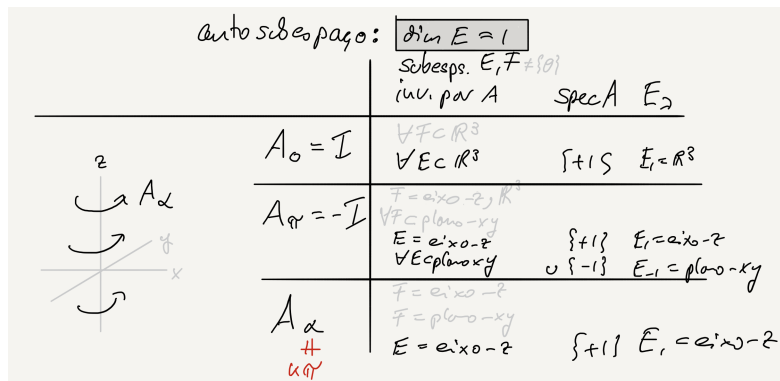 autosubespaço: dim E = 1
subesps. E, F ≠{0}
inv. por A
spec A E_λ
A_0 = I
∀F⊂ℝ³
∀E⊂ℝ³ {+1} E_1=ℝ³
z
A_α
y
x
A_π = -I
F = eixo-z, ℝ³
∀F⊂plano-xy
E = eixo-z {+1} E_1=eixo-z
∀E⊂plano xy ∪ {-1} E_-1 = plano-xy
A_α
F = eixo-z
F = plano-xy
E = eixo-z {+1} E_1 = eixo-z
≠
kπ